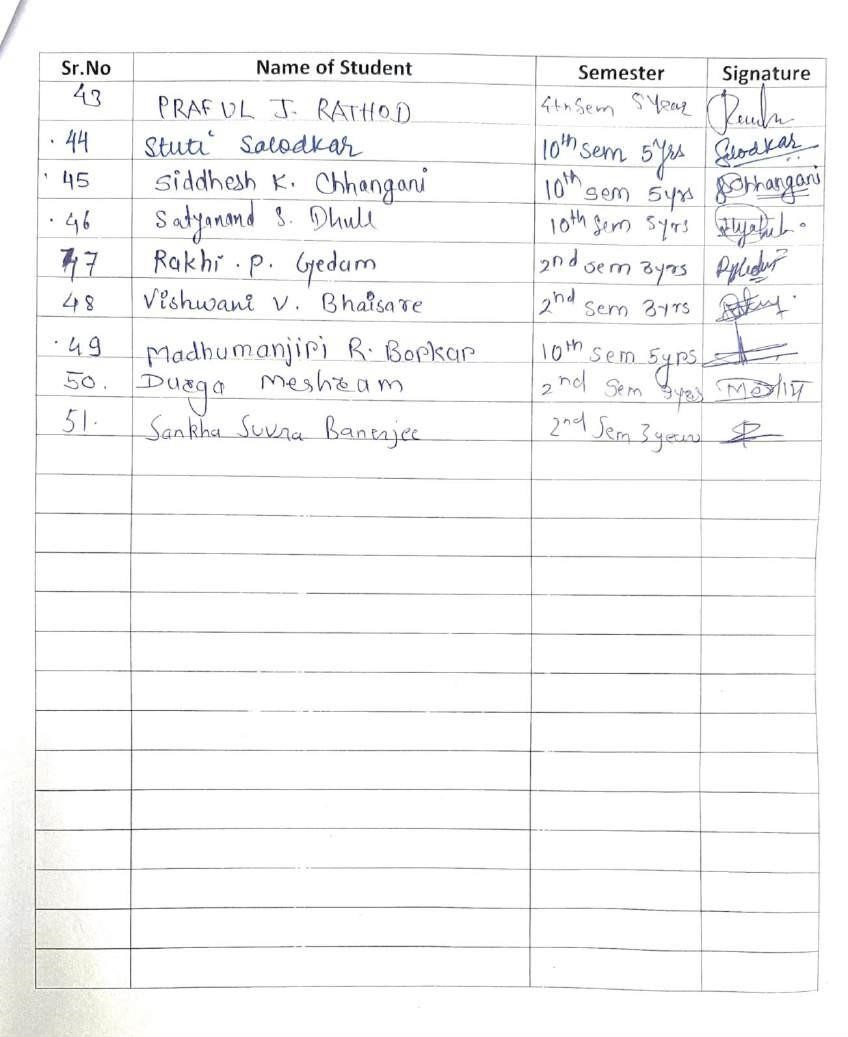 Sr.No Name of Student Semester Signature
43 PRAFUL J. RATHOD 4th Sem 5 Year
44 Stuti Salodkar 10th sem 5Yrs Salodkar
45 Siddhesh K. Chhangani 10th sem 5yrs SChhangani
46 Satyanand S. Dhule 10th Sem 5yrs
47 Rakhi . P. Gedam 2nd sem 3yrs
48 Vishwani V. Bhaisare 2nd Sem 3yrs
49 Madhumanjiri R. Borkar 10th sem 5yrs
50. Durga Meshram 2nd Sem 3yrs
51. Sankha Suvra Banerjee 2nd Sem 3 years